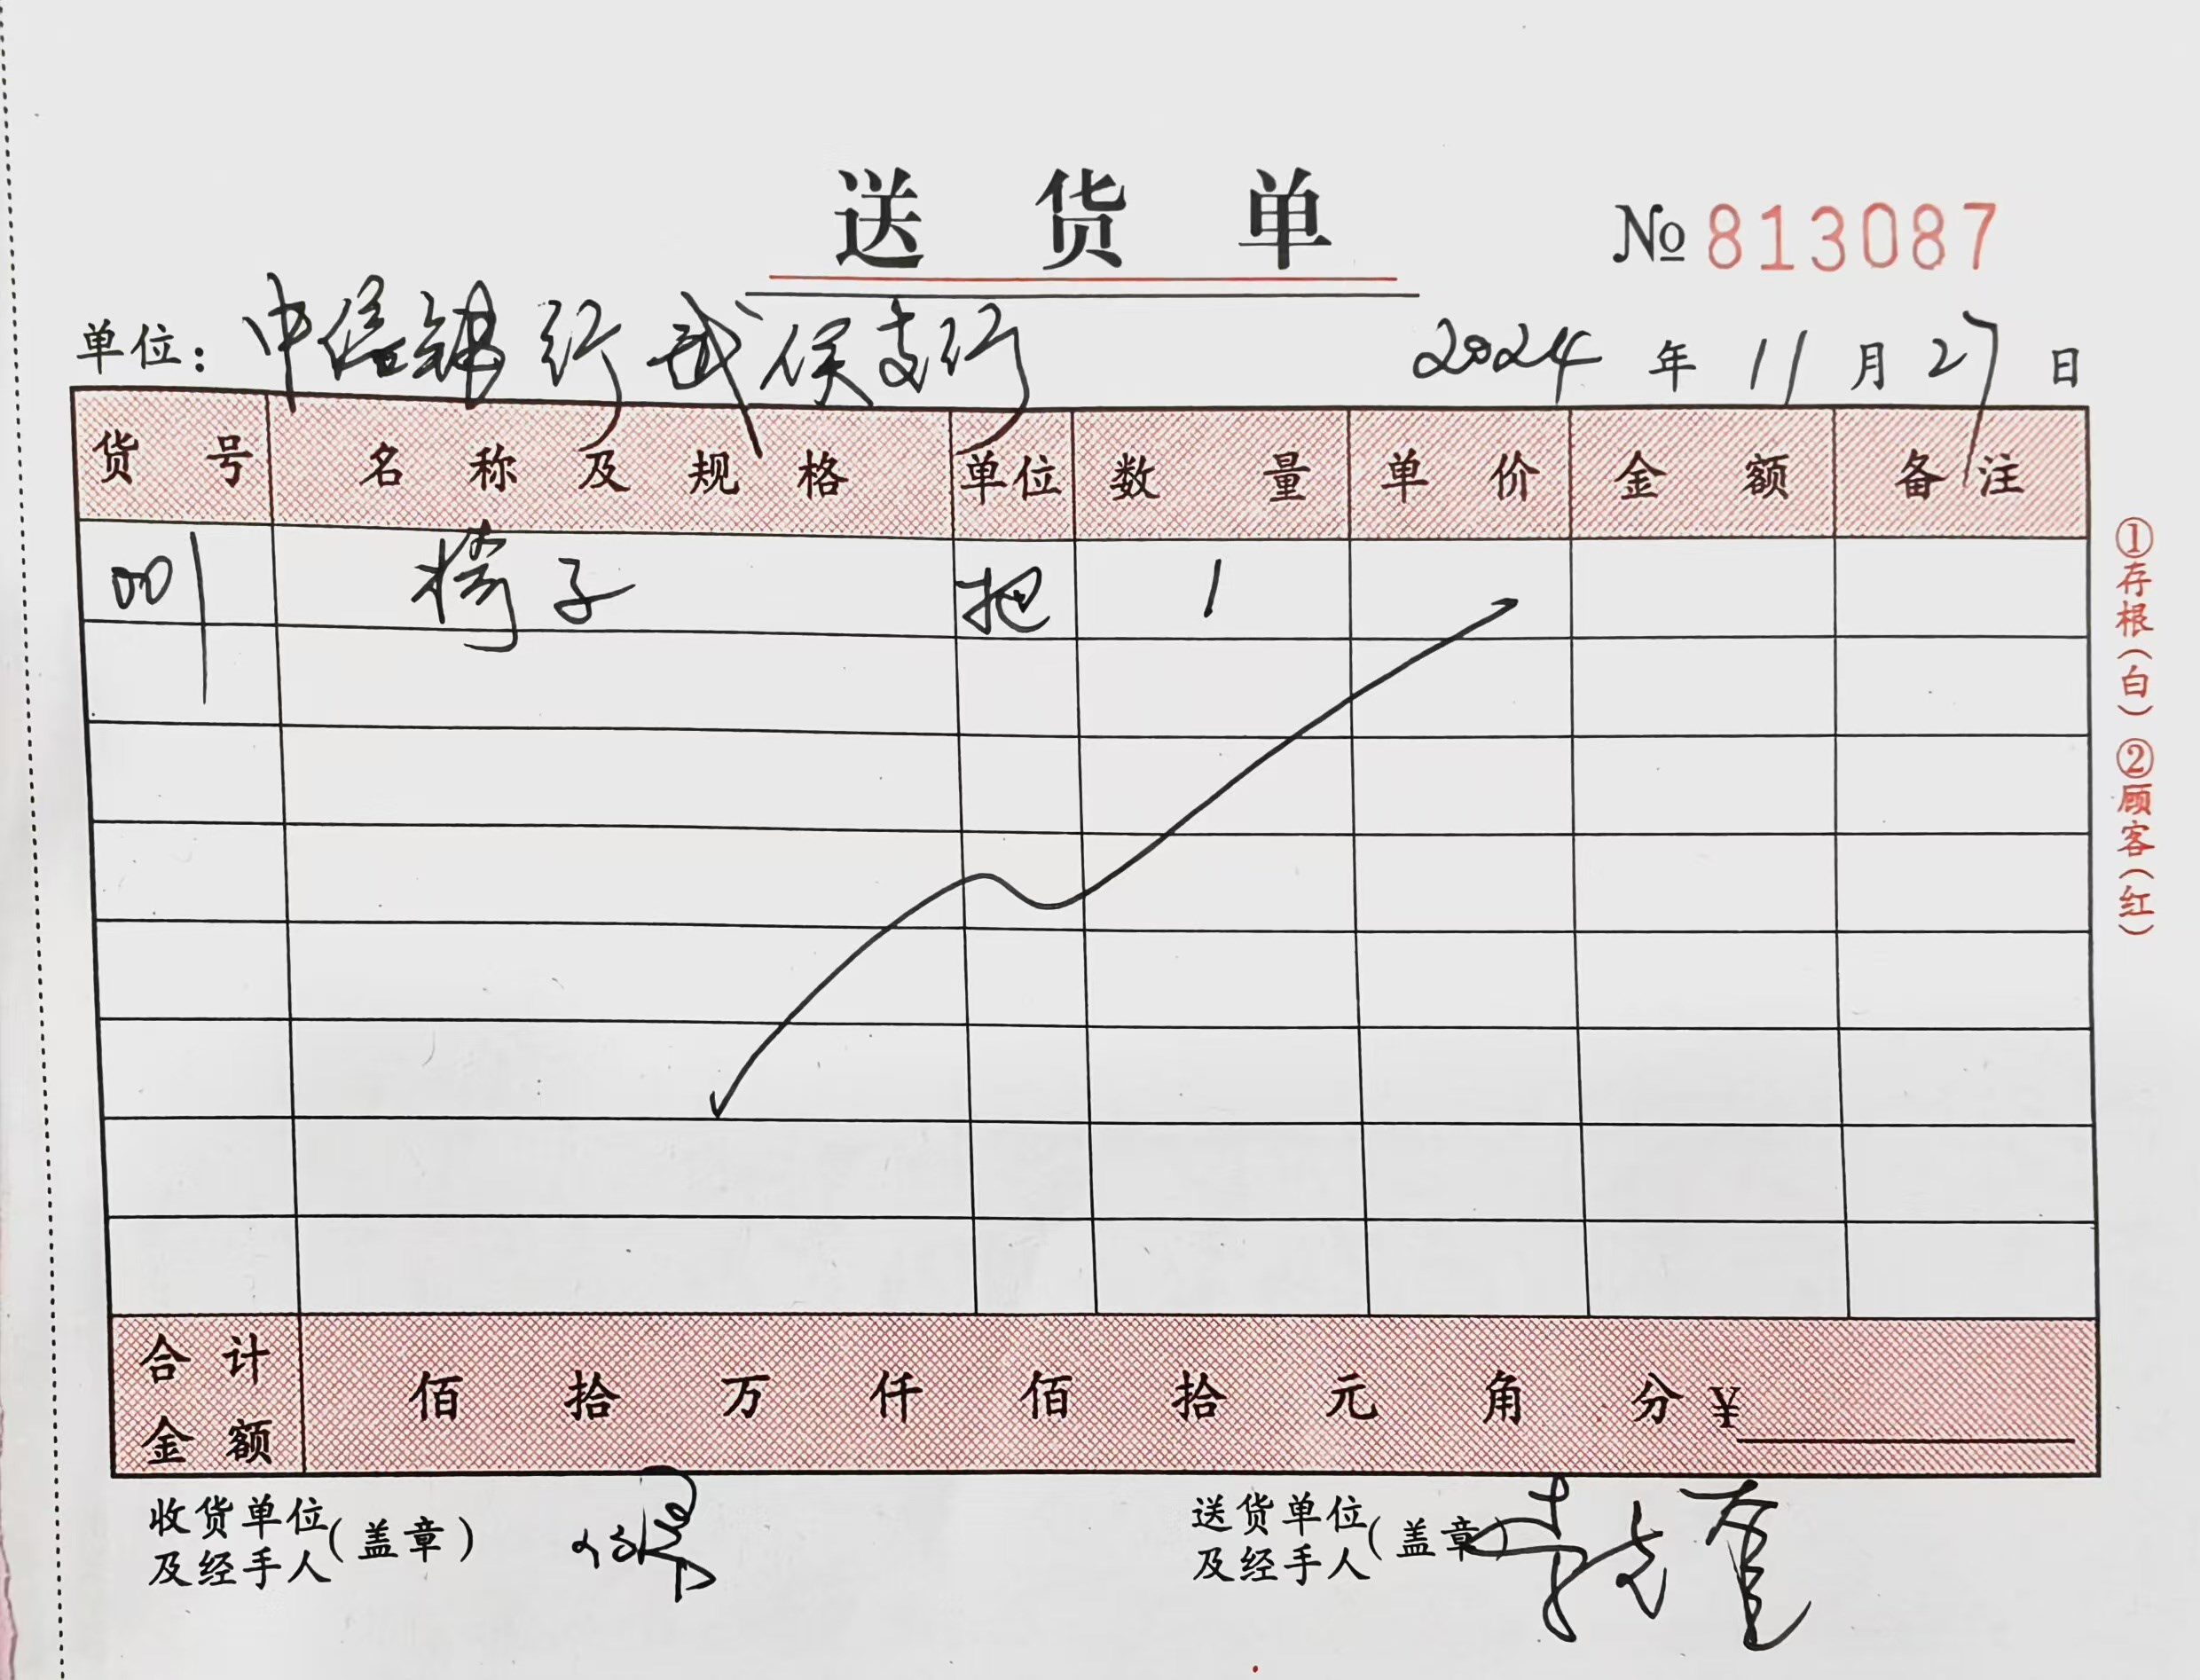 送货单
№ 813087
单位: 中信银行武侯支行 2024 年 11 月 27 日
货号 名称及规格 单位 数量 单价 金额 备注
001 椅子 把 1
合计金额 佰 拾 万 仟 佰 拾 元 角 分 ¥
收货单位及经手人(盖章)
送货单位及经手人(盖章)
①存根(白) ②顾客(红)